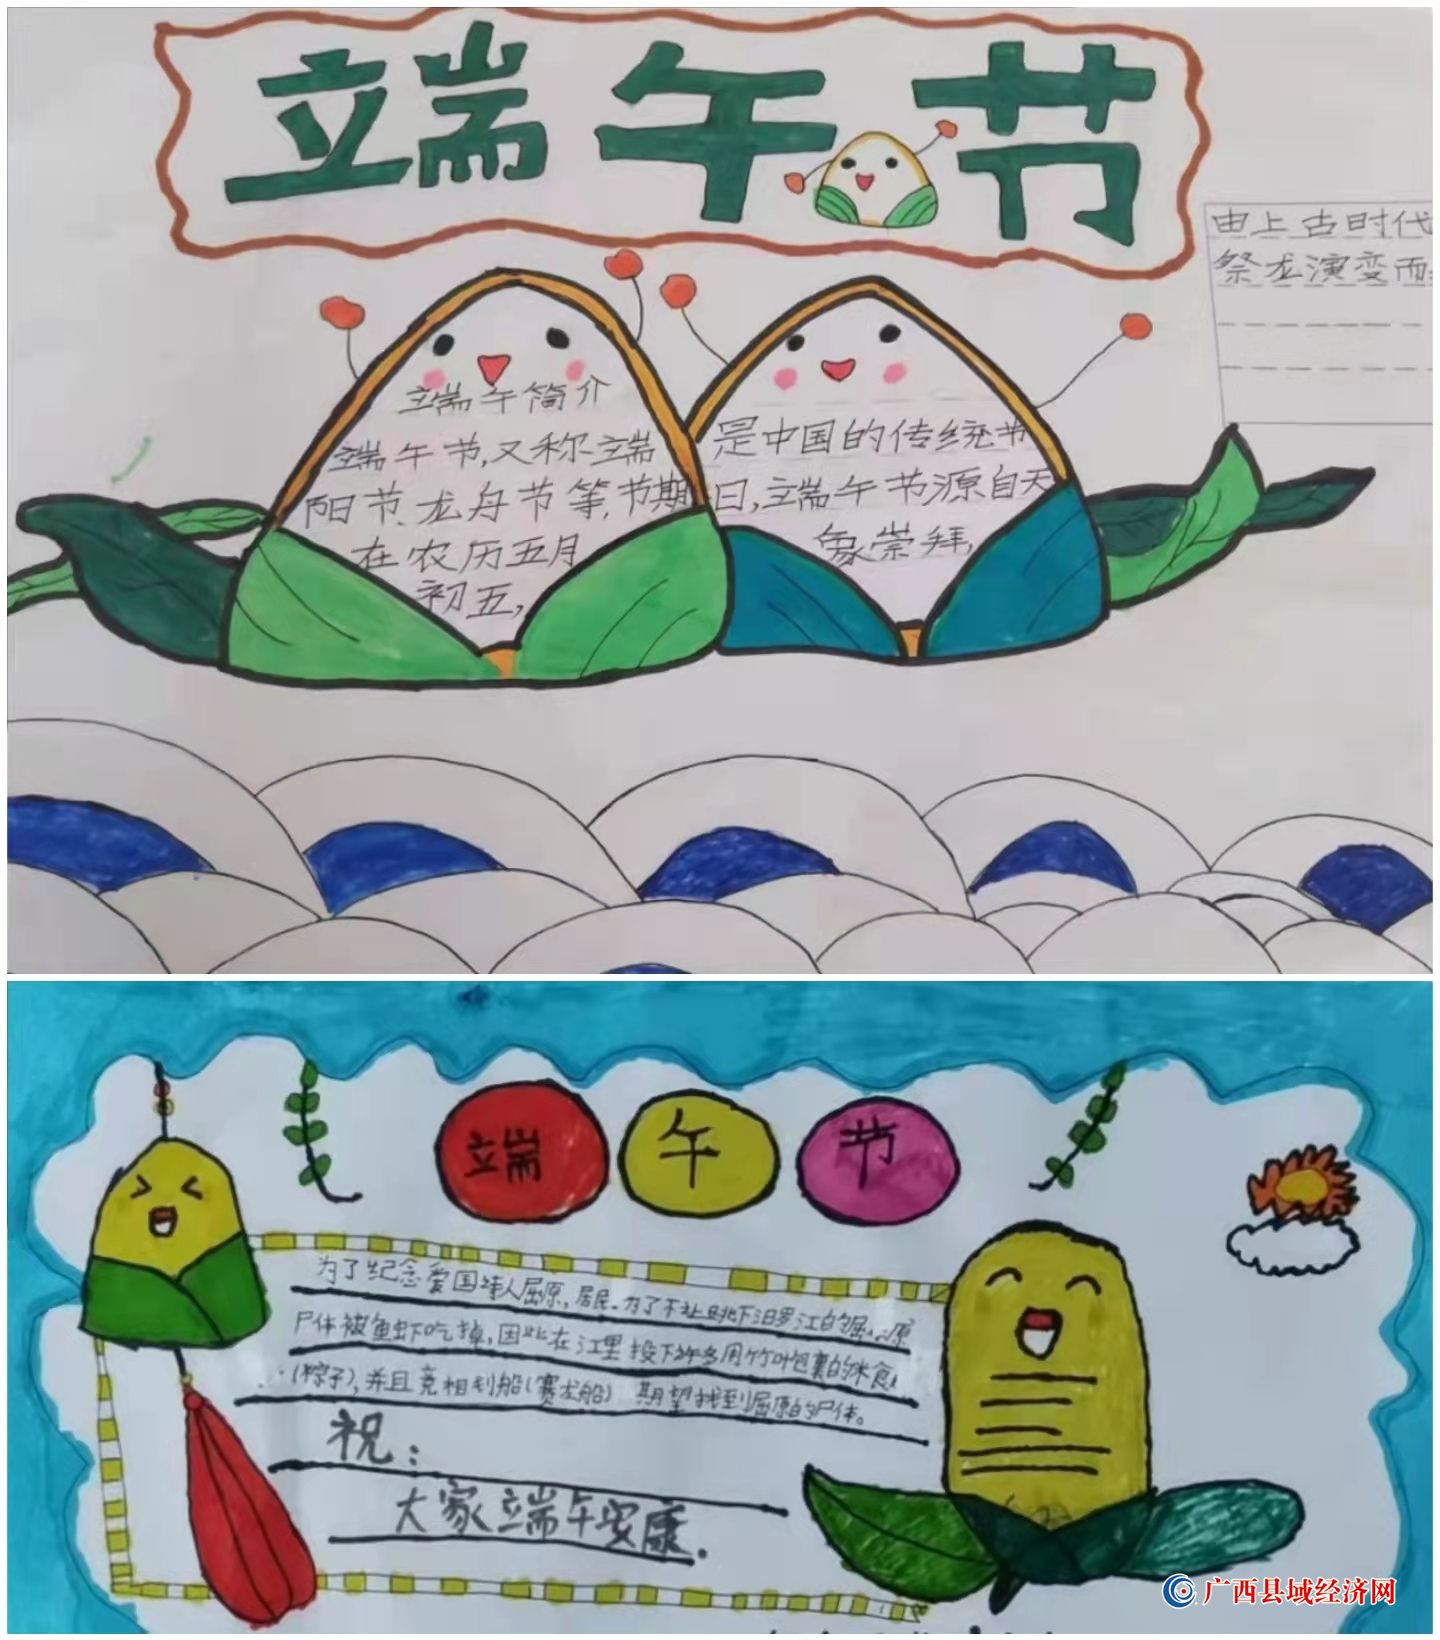 端午节
由上古时代
祭龙演变而
端午简介
端午节,又称端
阳节、龙舟节等,节期
在农历五月
初五,
是中国的传统节
日,端午节源自天
象崇拜,
端午节
为了纪念爱国诗人屈原,居民为了不让跳下汨罗江的屈原
尸体被鱼虾吃掉,因此在江里投下许多用竹叶包裹的米食
(粽子),并且竞相划船(赛龙船) 期望找到屈原的尸体。
祝:
大家端午安康.
广西县域经济网